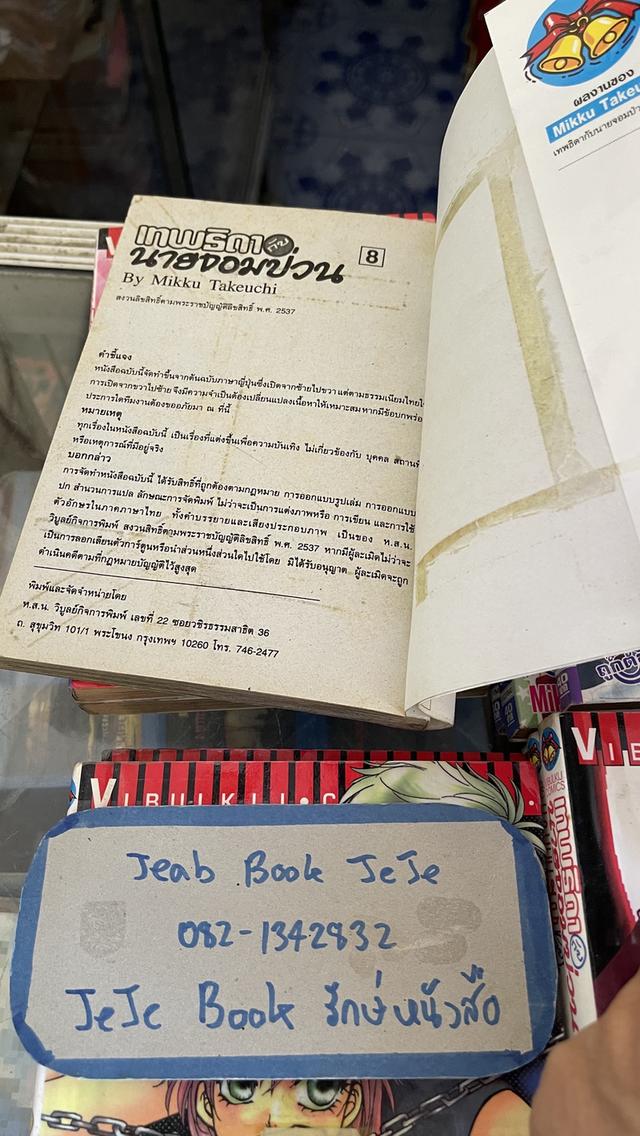 ผลงานของ
Mikku Takeu
เทพธิดากับนายจอมป่วน
เทพธิดา กับ
นายจอมป่วน 8
By Mikku Takeuchi
สงวนลิขสิทธิ์ตามพระราชบัญญัติลิขสิทธิ์ พ.ศ. 2537
คำชี้แจง
หนังสือฉบับนี้จัดทำขึ้นจากต้นฉบับภาษาญี่ปุ่นซึ่งเปิดจากซ้ายไปขวา แต่ตามธรรมเนียมไทย
การเปิดจากขวาไปซ้าย จึงมีความจำเป็นต้องเปลี่ยนแปลงเนื้อหาให้เหมาะสม หากมีข้อบกพร่อ
ประการใดทีมงานต้องขออภัยมา ณ ที่นี้
หมายเหตุ
ทุกเรื่องในหนังสือฉบับนี้ เป็นเรื่องที่แต่งขึ้นเพื่อความบันเทิง ไม่เกี่ยวข้องกับ บุคคล สถานที่
หรือเหตุการณ์ที่มีอยู่จริง
บอกกล่าว
การจัดทำหนังสือฉบับนี้ ได้รับสิทธิ์ที่ถูกต้องตามกฎหมาย การออกแบบรูปเล่ม การออกแบบ
ปก สำนวนการแปล ลักษณะการจัดพิมพ์ ไม่ว่าจะเป็นการแต่งภาพหรือ การเขียน และการใช้
ตัวอักษรในภาคภาษาไทย ทั้งคำบรรยายและเสียงประกอบภาพ เป็นของ ห.ส.น.
วิบูลย์กิจการพิมพ์ สงวนสิทธิ์ตามพระราชบัญญัติลิขสิทธิ์ พ.ศ. 2537 หากมีผู้ละเมิดไม่ว่าจะ
เป็นการลอกเลียนตัวการ์ตูนหรือนำส่วนหนึ่งส่วนใดไปใช้โดย มิได้รับอนุญาต ผู้ละเมิดจะถูก
ดำเนินคดีตามที่กฎหมายบัญญัติไว้สูงสุด
พิมพ์และจัดจำหน่ายโดย
ห.ส.น. วิบูลย์กิจการพิมพ์ เลขที่ 22 ซอยวชิรธรรมสาธิต 36
ถ. สุขุมวิท 101/1 พระโขนง กรุงเทพฯ 10260 โทร. 746-2477
VIBULKIJ • C
Jeab Book JeJe
082-1342832
JeJe Book รักษ์หนังสือ